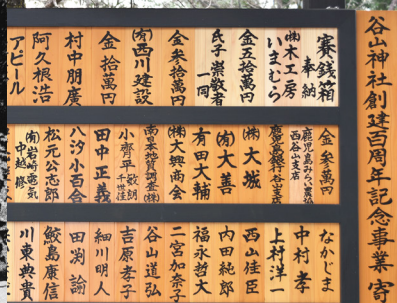 谷山神社創建百周年記念事業寄
賽銭箱
奉納
㈱木工房
いまむら
金五拾万円
氏子崇敬者
一同
金参拾万円
㈲西川建設
金拾萬円
村中朋廣
阿久根浩
アピール
金参萬円
鹿児島みらい
西谷山支店
鹿児島銀行谷山支店
㈱大城
㈲大善
有田大輔
㈱大興商会
南日本地質調査㈱
小齊平敏朗
千世佳
田中正義
八汐小百合
松元公志郎
㈲岩崎電気
中越修
なかじま
中村孝
上村洋一
西山佳臣
内田純郎
福永哲大
二宮加奈子
谷山道弘
吉原孝子
細川明人
田渕諭
鮫島康信
川東典貴